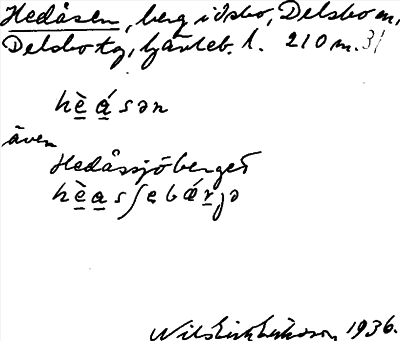 Hedåsen, berg i Ösbo, Delsbo sn,
Delsbo tg, Gävleb. l. 210 m. 31
hè̲á̲sən
även
Hedåssjöberget
hè̲a̲sʃe̲bǽr̲jə
Nils Erik Eriksson 1936.